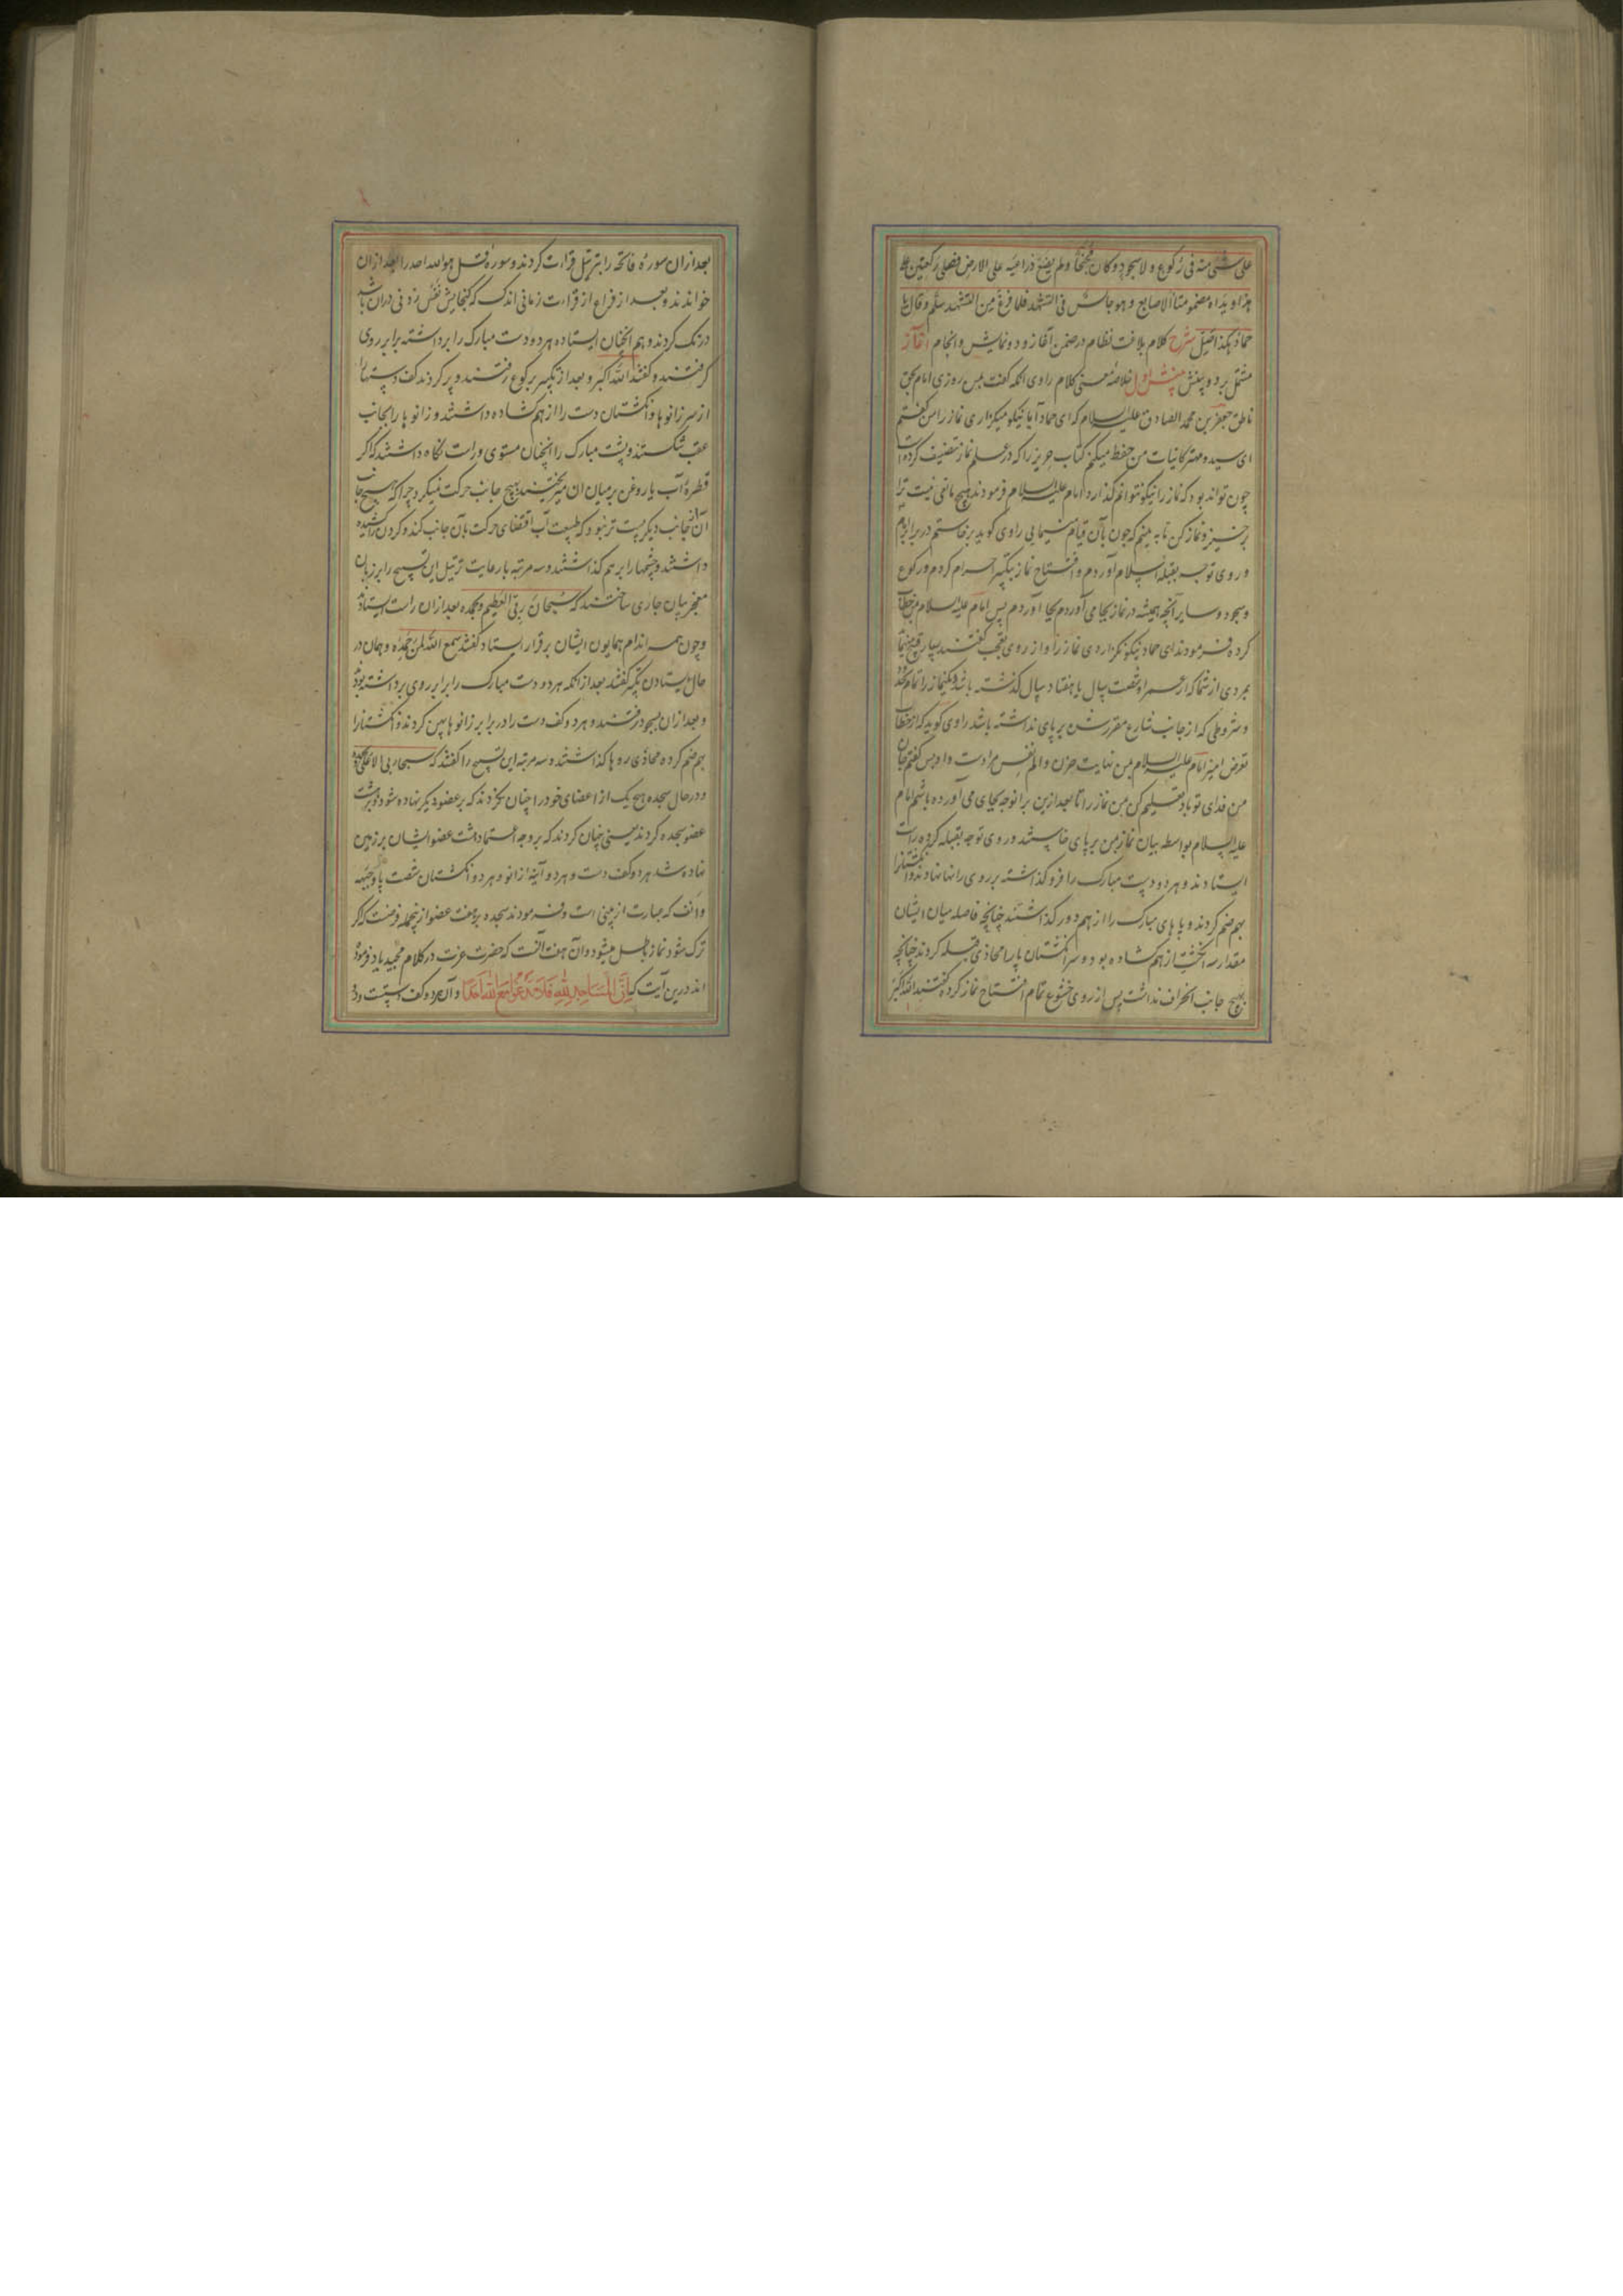 علی شئ منه فی رکوع و لا سجود و کان مجنحا و لم یضع ذراعیه علی الارض فصلی رکعتین علی
هذا و یداه مضمومتا الاصابع و هو جالس فی التشهد فلما فرغ من التشهد سلم و قال یا
حماد هکذا صل شرح کلام بلاغت نظام در ضمن آغاز و دو نمایش و انجام آغاز
مشتمل بر دو بینش بینش اول خلاصه معنی کلام راوی انکه گفت بمن روزی امام بحق
ناطق جعفر بن محمد الصادق علیه السلام که ای حماد آیا نیکو میکزاری نماز را من گفتم
ای سید و مهتر کاینات من حفظ میکنم کتاب حریز را که در علم نماز تصنیف کرده است
چون تواند بود که نماز را نیکو نتوانم گذارد امام علیه السلام فرمودند هیچ مانعی نیست ترا
برخیز و نماز کن تا به بینم که چون بآن قیام مینمایی راوی کوید برخاستم در برابر امام
و روی توجه بقبله اسلام آوردم و افتتاح نماز بتکبیر احرام کردم و رکوع
و سجود و سایر آنچه همیشه در نماز بجا می آوردم بجا آوردم پس امام علیه السلام بمن خطاب
کرده فرمودند ای حماد نیکو نکزاردی نماز را و از روی تعجب گفتند بسیار قبیح مینماید
بمردی از شما که از عمر او شصت سال یا هفتاد سال گذشته باشد و یکنماز را تمام بحدود
و شروطی که از جانب شارع مقرر شده بر پای نداشته باشد راوی کوید که از خطاب
تعرض امیز امام علیه السلام بمن نهایت حزن و الم بنفس من راه یافت و او پس گفتم جان
من فدای تو باد تعلیم کن بمن نماز را تا بعد ازین برانوجه بجای می آورده باشم امام
علیه السلام بواسطه بیان نماز بمن بر پای خاستند و روی توجه بقبله کرده راست
ایستادند و هر دو دست مبارک را فرو گذاشته بر روی رانها نهادند و انکشتانرا
بهم ضم کردند و پاهای مبارک را از هم دور گذاشتند چنانچه فاصله میان ایشان
مقدار سه انکشت از هم کشاده بود و سر انکشتان پا را محاذی قبله کردند چنانچه
بهیچ جانب انحراف نداشت پس از روی خشوع تمام افتتاح نماز کرده گفتند الله اکبر
بعد از ان سوره فاتحه را بترتیل قراءت کردند و سوره قل هو الله احد را بعد از ان
خواندند و بعد از فراغ از قراءت زمانی اندک که کنجایش نفس زدنی در ان باشد
درنک کردند و هم انچنان ایستاده هر دو دست مبارک را برداشته برابر روی
گرفتند و گفتند الله اکبر و بعد از تکبیر برکوع رفتند و پر کردند کف دستها را
از سر زانوها و انکشتان دست را از هم کشاده داشتند و زانوها را بجانب
عقب شکستند و پشت مبارک را انچنان مستوی و راست نکاه داشتند که اکر
قطره آب یا روغن بر میان ان میریختند بهیچ جانب حرکت نمیکرد چرا که هیچ جانب
آن از جانب دیکر پست تر نبود که طبیعت آب اقتضای حرکت بآن جانب کند و کردن را کشیده
داشتند و چشمها را بر هم گذاشتند و سه مرتبه با رعایت ترتیل این تسبیح را بر زبان
معجز بیان جاری ساختند که سبحان ربی العظیم و بحمده بعد از ان راست ایستادند
و چون همه اندام همایون ایشان برقرار ایستاد گفتند سمع الله لمن حمده و همان در
حال ایستادن تکبیر گفتند بعد از انکه هر دو دست مبارک را برابر روی برداشته بودند
و بعد از ان بسجود رفتند و هر دو کف دست را در برابر زانوها پهن کردند و انکشتانرا
بهم ضم کرده محاذی روها گذاشتند و سه مرتبه این تسبیح را گفتند که سبحان ربی الاعلی و بحمده
و در حال سجده هیچ یک از اعضای خود را چنان نکردند که بر عضو دیکر نهاده شود و بر هشت
عضو سجده کردند یعنی چنان کردند که بر وجه اعتماد هشت عضو ایشان بر زمین
نهاده شد هر دو کف دست و هر دو آینه زانو و هر دو انکشتان شصت پا و جبهه
و انف که عبارت از بینی است و فرمودند سجده بر هفت عضو از ینجمله فرضست که اکر
ترک شود نماز باطل میشود و آن هفت آنست که حضرت عزت در کلام مجید یاد فرموده
اند درین آیت که انّ المساجد لله فلا تدعوا مع الله احدا و آن هر دو کف دستست و دو